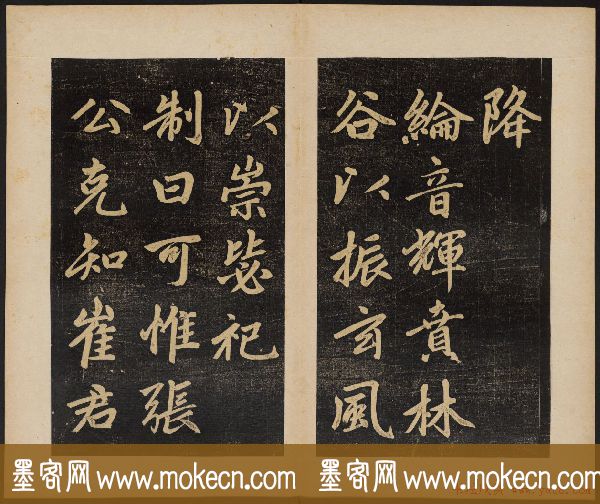 降
綸音輝賁林
谷以振玄風
以崇毖祀
制曰可惟張
公克知崔君
墨客网 www.mokecn.com 墨客网 www.mokecn.com